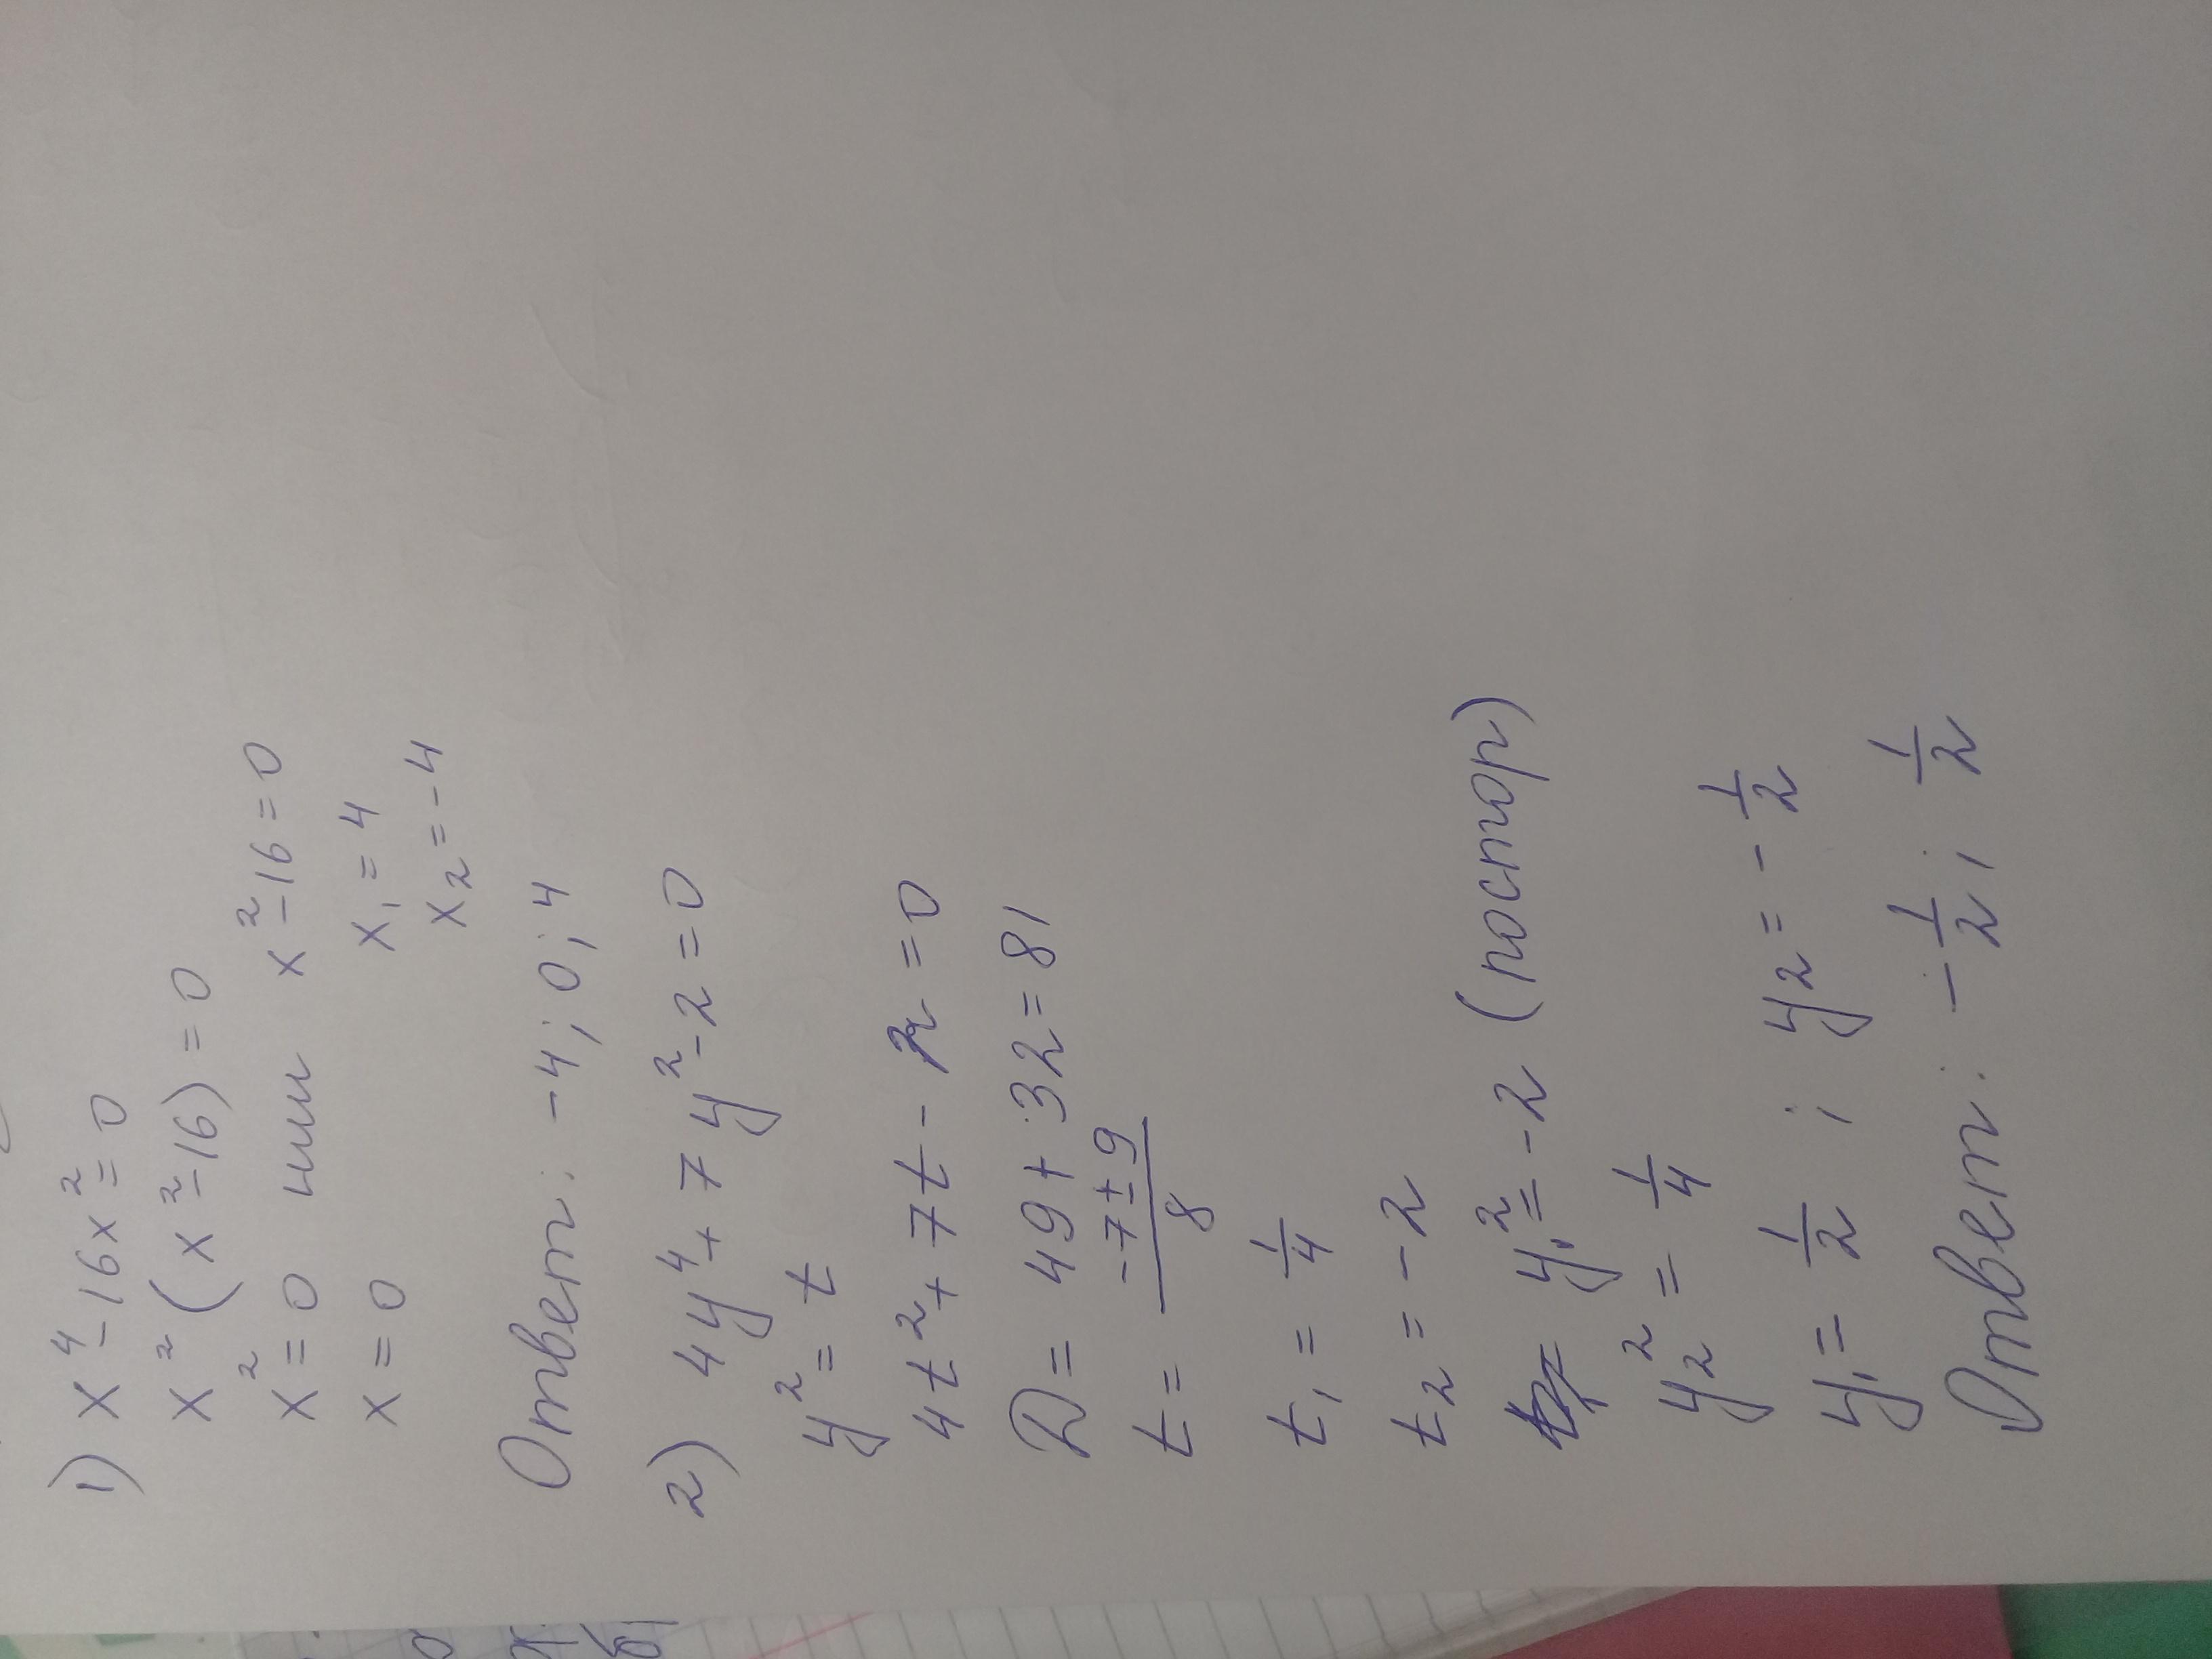 1) x⁴ - 16x² = 0
x² (x² - 16) = 0
x² = 0 или x² - 16 = 0
x = 0 x₁ = 4
x₂ = -4
Ответ: -4; 0; 4
2) 4y⁴ + 7y² - 2 = 0
y² = t
4t² + 7t - 2 = 0
D = 49 + 32 = 81
t = (-7 ± 9)/8
t₁ = 1/4
t₂ = -2
y₁² = -2 (постор)
y₂² = 1/4
y₁ = 1/2 ; y₂ = - 1/2
Ответ: - 1/2; 1/2